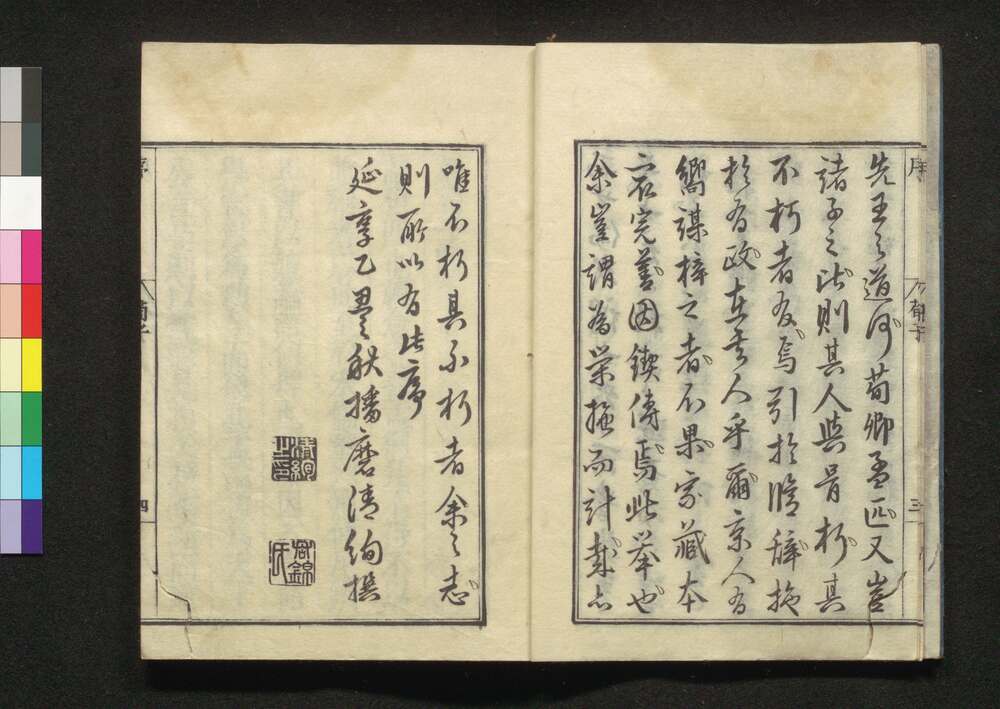 序
荀子
三
先王之道 荀卿孟匹又豈
諸子之比則其人與骨朽其
不朽者 焉引於脩辭施
於有政在其人乎爾京人有
嚮謀梓之者不果家藏本
冣完善因鍥傳焉此舉也
余豈謂為榮施而計哉亦
唯不朽其不朽者余之志
則所以有此序
延享乙丑秋播磨清絢撰
清絢之印
君錦氏
序
荀子
四